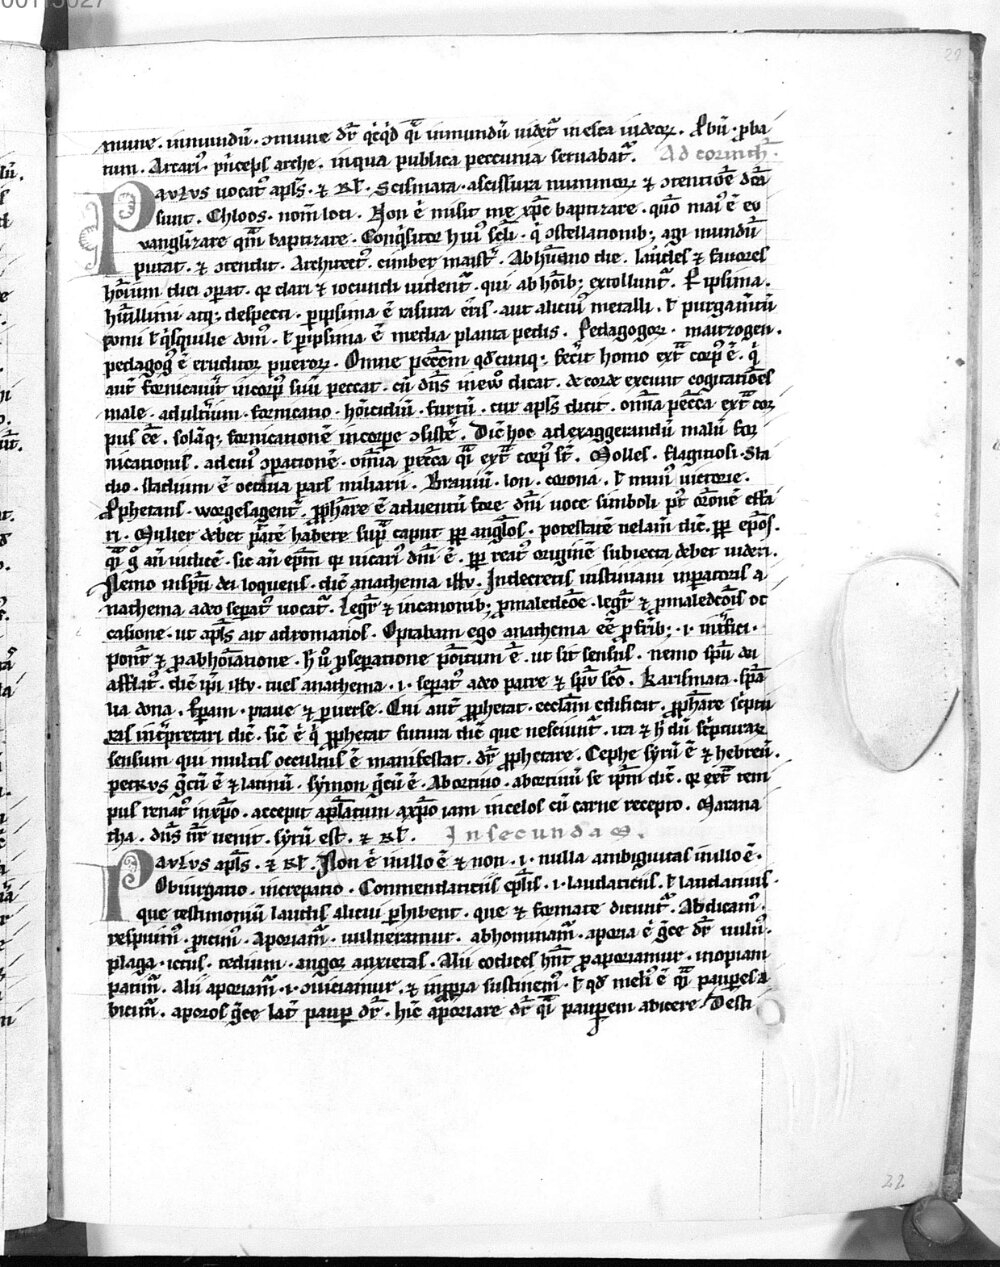 mune. inmundū. ↄmune dr̄ qͥcqͥd qͣi inmundū uidet᷑ in esca iudeoꝝ. Pbū. ꝓba
tum. Arcariꝰ. pͥnceps arche. inqua publica peccunia seruabat᷑. Ad corinth̄.
Paulus uocat᷑ apl̄s. ⁊ Rl̄. Scismata. ascissura nummoꝝ ⁊ ↄtentiōe
sunt. Chloos. nom̄ loci. Non ē misit me xp̄c baptizare. quō maiꝰ ē eu
uanglizare qm̄ baptizare. Conqͥsitor huiꝰ scl̄i. qͥ ↄstellationibꝫ agi mundū
putat. ⁊ ↄtendit. Architect᷑. cimber maist᷑. Abhūano die. laudes ⁊ fauores
hōium dici ꝑat. qꝛ clari ⁊ iocundi uident᷑. qui abhōibꝫ extollunt᷑. Pipsima.
humillimi atqꝫ despecti. pipsima ē rasura ēris. aut alicuiꝰ metalli. l̄ purgam̄tū
pomi l̄ qͥsquilie domꝰ. l̄ pipsima ē media planta pedis. Pedagogoꝝ. maitzogen.
pedagogꝰ ē eruditor pueroꝝ. Omne pecc̄m qd̄cunqꝫ fec̄it homo ext͂ corpꝰ ē. qͥ
aut̄ fornicatur̄ incorpꝰ suū peccat. cū dn̄s in ewº dicat. de corde exeunt cogitatiōes
male. adult̄ium. fornicatio. hōicidiū. furtū. cur apl̄s dicit. omīa pec̄ca ext͂ cor
pus ēē. solāqꝫ fornicationē incorpe ↄsistē. Dic̄ hoc ad exaggerandū malū for
nicationis. ad cuiꝰ ꝑationē. omīa pec̄ca qͣi ext͂ corpꝰ st̄. Molles. flagitiosi. Sta
dio. stadium ē octaua pars miliarii. Brauiū. lon. corona. l̄ munꝰ uictorie.
Pphetans. worgesagent᷑. ꝓph̄are ē aduentū fore dn̄i uoce simboli pt̄ orōnē effa
ri. Mulier debet pͣte h̄abere supͣ caput ꝓp anglōs. potestatē uelam dic̄. ꝓp ep̄os.
qͣi gͦ an̄ iudicē. sic an̄ ep̄m qꝛ uicariꝰ dn̄i ē. ꝓp reatꝰ originē subiecta debet uideri.
Nemo in sp̄u dei loquens. dic̄ anathema ihu. In decretis iustiniani inpatoris a
nathema adeo sepat᷑ uocat᷑. Legr̄ ⁊ incanonibꝫ ꝓmaledictōe. legr̄ ⁊ ꝓmaledictōis oc
casione. ut apl̄s ait ad romanos. Optabam ego anathema ēē ꝓ fr̄ibꝫ.
ponit᷑ ⁊ pabhōiatione. h̄ uͦ ꝓsepatione poſitum ē. ut sit sensus. nemo sp̄u dei
afflatꝰ. dic̄ ip̄i ihu. tu es anathema. i. sepatꝰ adeo patre ⁊ sp̄u scō. Karismata. spͣa
lia dona. Ppam. praue ⁊ puerse. Qui aut̄ ꝓphetat. ecclām edificat. ꝓph̄are sc̄ptu
ras int̄pretari dic̄. sic̄ ē qͥ ꝓphetat futura dic̄ que nesciunt᷑. ita ⁊ h̄ dū sc̄pturaꝝ
sensum qui multis occultus ē manifestat. dr̄ ꝓphetare. Cephe syrū ē ⁊ hebreū.
petrus gͣcū ē ⁊ latinū. symon gͣcū ē. Abortiuo. abortiuū se ip̄m dic̄. qꝛ ext͂ tem
pus renatꝰ inxp̄o. accepit apl̄atum axp̄o iam in celos cū carne recepto. Marana
tha. dn̄s nr̄ uenit. syrū est. ⁊ Rl̄. In secunda
Paulus apl̄s. ⁊ Rl̄. Non ē in illo ē ⁊ non. i. nulla ambiguitas in illo ē.
Obiurgatio. increpatio. Conmendaticiis epl̄is. i. laudaticiis. l̄ laudatiuis.
que testimoniū laudis alicui phibent. que ⁊ formate dicunt᷑. Abdicamꝰ.
respuimꝰ. ꝓicimꝰ. Aporiam᷑. uulneramur. abhominam᷑. aporia ē gͣce dr̄ uulnꝰ.
plaga. ictus. tedium. angor anxietas. Alii codices hn̄t ꝓaporiamur. inopiam
patim᷑. Alii aporiam᷑. i. ↄuiciamur. ⁊ inꝓpia sustinemꝰ. l̄ qd̄ meliꝰ ē qͣi paupes a
bicim᷑. aporos gͣce lat̄ paup dr̄. hic̄ aporiare dr̄ qͣi paupem abicere. Desti